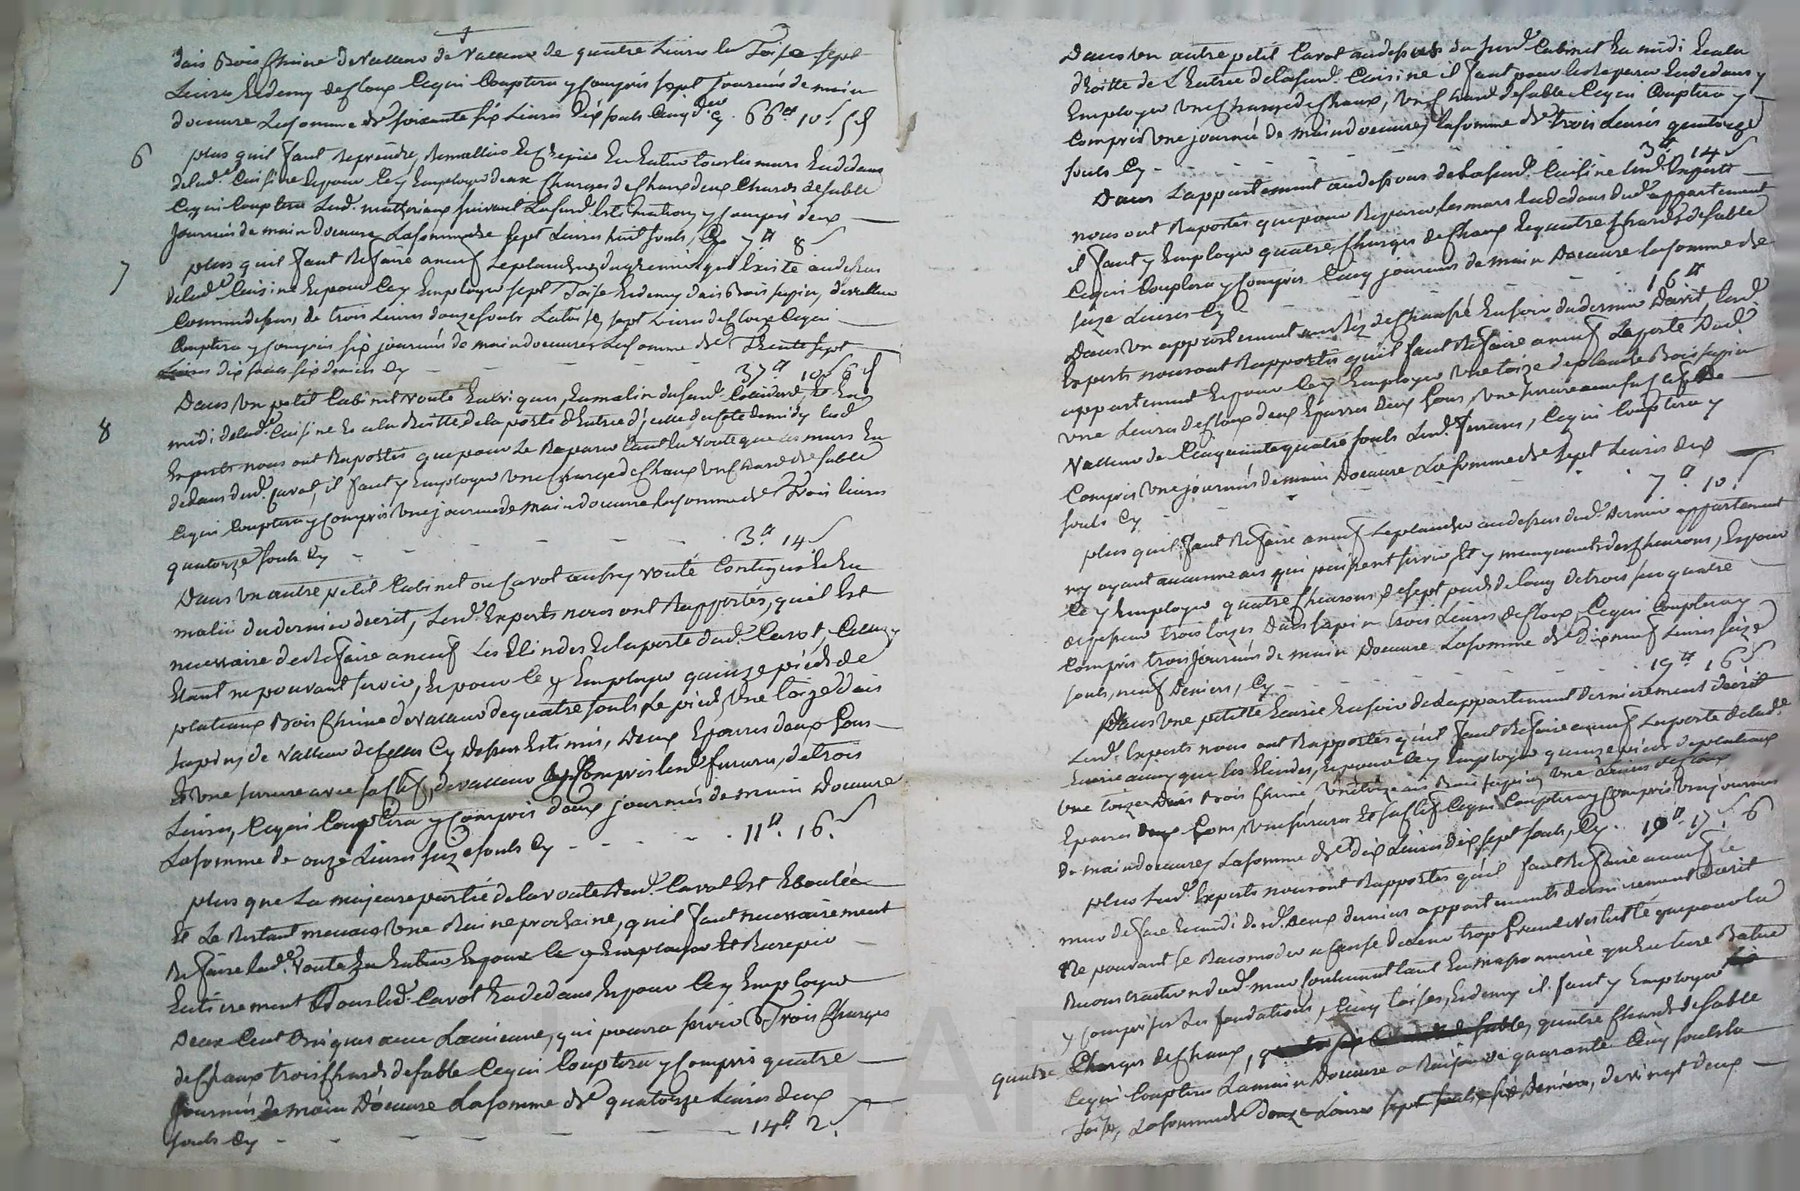 dais Bois chaine de valleur de quatre Livres la Toise sept
Livres Et demy de cloux Ce qui Couptera y Compris sept Journées de main
doeuvre La somme de soixante six Livres dix souls Cinq der Cy 66# 10s 5d
6 plus quil faut Reprendre, Remallier Et Crepir En Entier tous les murs En dedans
de lade Cuisine Et pour Ce y Employer deux Charges de Chaux deux Chards de sable
Ce qui Couptera Lesd. matteriaux suivant La susd. Estimation y Compris deux
Journées de main doeuvre La somme de sept Livres huit souls, Cy 7# 8s
7 plus quil faut Refaire a neuf Le plancher du grenier qui Existe au dessus
de lade Cuisine Et pour Ce y Employer sept Toise Et demy dais Bois sapin, de valleur
Comme dessus, de trois Livres douze souls La toise, sept Livres de Cloux Ce qui
Couptera y Compris six journées de main doeuvre La somme de Trente sept
Livres dix souls six deniers Cy 37# 10s 6d
8 Dans un petit Cabinet vouté En briques, Au matin du susd. Couidard, Et En
midi de lade Cuisine Et a la Droitte de la porte d'Entrée d'icelle du coté de midy Lesd
Experts nous ont Raportés que pour Le Reparer tant La voute que les murs En
dedans dud. Cavot, il faut y Employer une Charge de Chaux un Chard de sable
Ce qui Couptera y Compris une journée de main doeuvre La somme de Trois livres
quatorze souls Cy 3# 14s
Dans un autre petit Cabinet ou Cavot aussy vouté Contigu Et En
matin du dernier decrit, Lesd. Experts nous ont Rapportés, quil Est
necessaire de Refaire a neuf Les Elindes Et la porte dud. Cavot, Celle y
Etant ne pouvant servir, Et pour Ce y Employer quinze pieds de
plateaux Bois Chaine de valleur de quatre souls Le pied, une toize dais
sapin, de valleur de Celles Cy dessus Estimés, Deux Eparres deux Gons
Et une serrure avec sa clef, de valleur y Compris Lesd. ferrures, de trois
Livres, Ce qui Couptera y Compris deux journées de main Doeuvre
La somme de onze Livres seize souls Cy 11# 16s
plus que La majeure partie de la voute dud. Cavot Est Eboulée
Et Le Restant menace une Ruine prochaine, quil faut necessairement
Refaire lade voute En Entier Et pour Ce y Employer Et Recrepir
Entierement Tous led. Cavot En dedans Et pour Ce y Employer
Deux Cent Briques avec L'ancienne, qui pourra servir Trois Charges
de Chaux trois Chards de sable Ce qui Couptera y Compris quatre
Journées de main Doeuvre La somme de quatorze Livres deux
souls Cy 14# 2s
Dans un autre petit Cavot au dessous du susd. Cabinet En midi Et a la
droitte de L'Entrée de la susd. Cuisine il faut pour le Reparer En dedans y
Employer une Charge de Chaux, un Chard de sable Ce qui Couptera y
Compris une journée de main doeuvre La somme de trois Livres quatorze
souls Cy 3# 14s
Dans L'appartement au dessous de la susd. Cuisine Lesd. Experts
nous ont Raportés que pour Reparer les murs En dedans dud. appartement
il faut y Employer quatre Charges de Chaux Et quatre Chards de sable
Ce qui Couptera y Compris Cinq journées de main Doeuvre La somme de
seize Livres Cy 16#
Dans un appartement au Réz de Chaussé En soir du dernier Décrit, Lesd.
Experts nous ont Rapportés quil faut Refaire a neuf La porte Dud.
appartement Et pour Ce y Employer une toize de planche Bois sapin
une Livre de Cloux deux Eparres deux Gons, une serrure avec sa Clef de
valleur de Cinquante quatre souls Lesd. ferrures, Ce qui Couptera y
Compris une journée de main Doeuvre La somme de sept Livres dix
souls Cy 7# 10s
plus quil faut Refaire a neuf Le plancher au dessus dud. Dernier appartement
ny ayant aucunne ais qui puissent servir, Et y manquants des chevrons, Et pour
Ce y Employer quatre Chevrons de sept pieds de long de trois sur quatre
depesseur trois toizes Dais sapin trois Livres de Cloux, Ce qui Couptera y
Compris trois Journées de main Doeuvre La somme de dix neuf Livres seize
souls, neuf Deniers, Cy 19# 16s
Dans une petitte Ecurie En soir de Lappartement dernierement decrit
Lesd. Experts nous ont Rapportés quil faut Refaire a neuf La porte de lade
Ecurie ainsy que les Elindes, Et pour Ce y Employer quinze pieds de plateaux
une toize Dais Bois sapin, une Livre de cloux
Eparres deux Gons, une serrure Et sa clef Ce qui Couptera y Compris une journée
de main doeuvre La somme de dix Livres dix sept souls, Cy 10# 17s 6
plus Lesd. Experts nous ont Rapportés quil faut Refaire a neuf le
mur de face En midi desd. deux derniers appartements dernierement Décrit
Ne pouvant se Racomoder a Cause de leur trop Grande vestusté que pour la
Reconstruction dud. mur
y Compris Les fondations, Cinq toises, Et demy il faut y Employer
quatre Charges de Chaux, quatre Chards de sable
Ce qui Couptera La main Doeuvre a Raison de quarante Cinq souls la
Toise, La somme de douze Livres sept souls six Deniers, de vingt deux